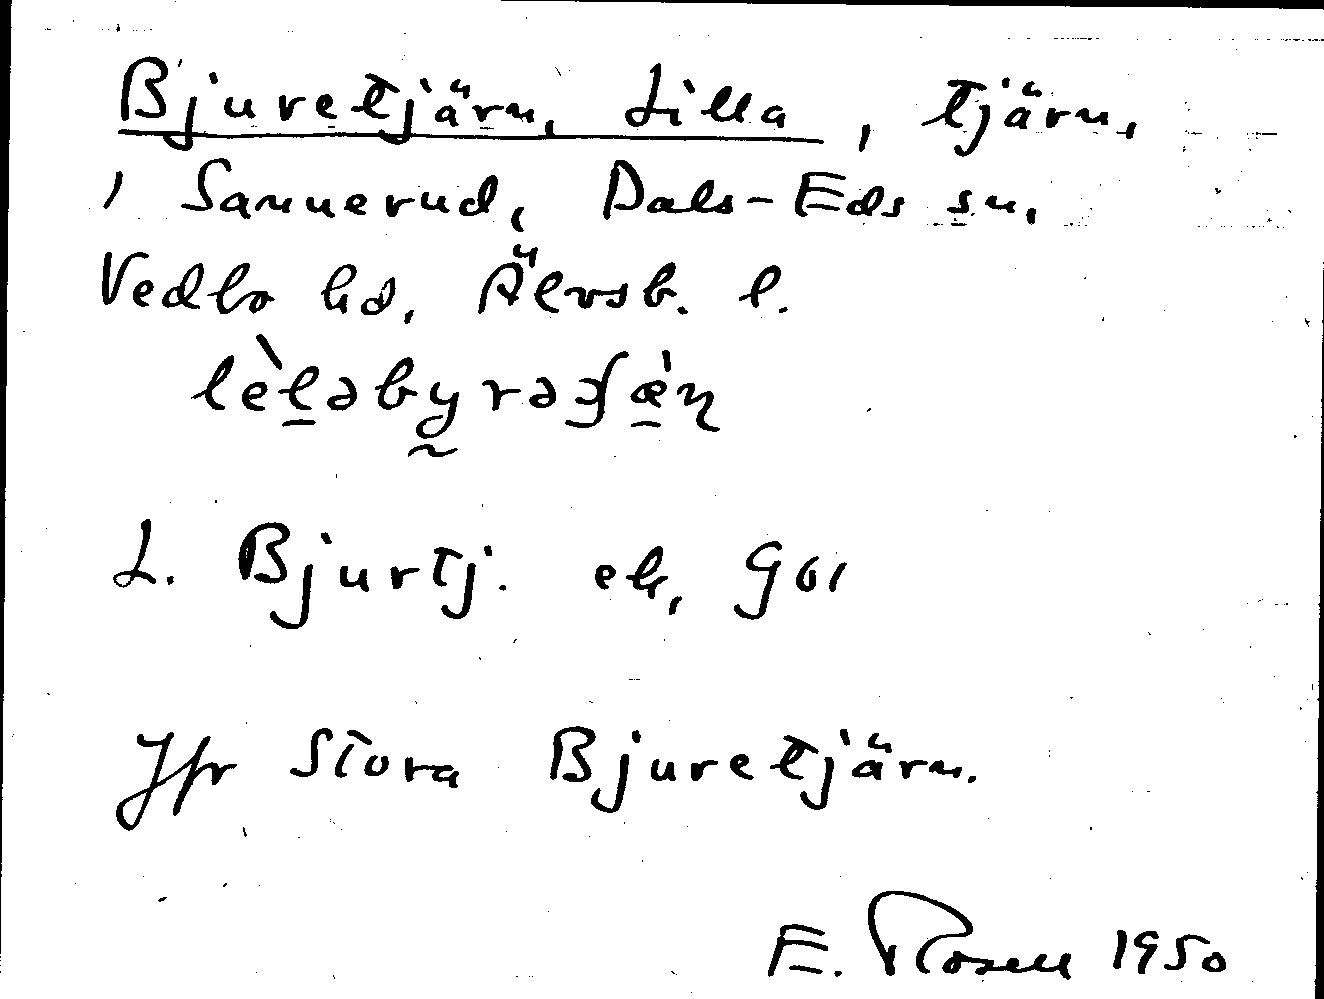 Bjuretjärn, Lilla, tjärn,
i Sannerud, Dals-Eds sn,
Vedbo hd, Älvsb. l.
L. Bjurtj. ek, G01
Jfr Stora Bjuretjärn.
E. Rosell 1950